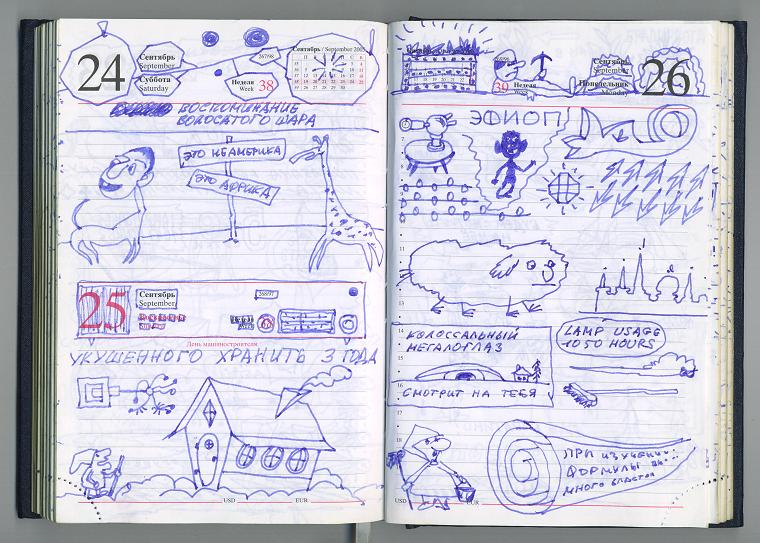 24
Сентябрь
September
Суббота
Saturday
26798
Неделя
Week 38
Сентябрь / September 2005
ВОСПОМИНАНИЕ
ВОЛОСАТОГО ШАРА
ЭТО НЕ АМЕРИКА
ЭТО АФРИКА
25
Сентябрь
September
268/97
День машиностроителя
УКУШЕННОГО ХРАНИТЬ 3 ГОДА
USD EUR
39 Неделя
Week
Сентябрь
September
Понедельник
Monday
26
ЭФИОП
КОЛОССАЛЬНЫЙ
МЕГАЛОГЛАЗ
СМОТРИТ НА ТЕБЯ
LAMP USAGE
1050 HOURS
ПРИ ИЗУЧЕНИИ
ФОРМУЛЫ
МНОГО
USD EUR